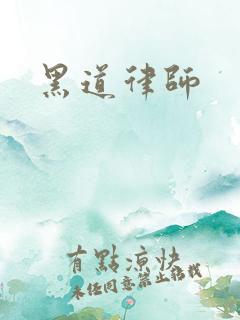 黑道律師
有點涼快
未經同意禁止搭找